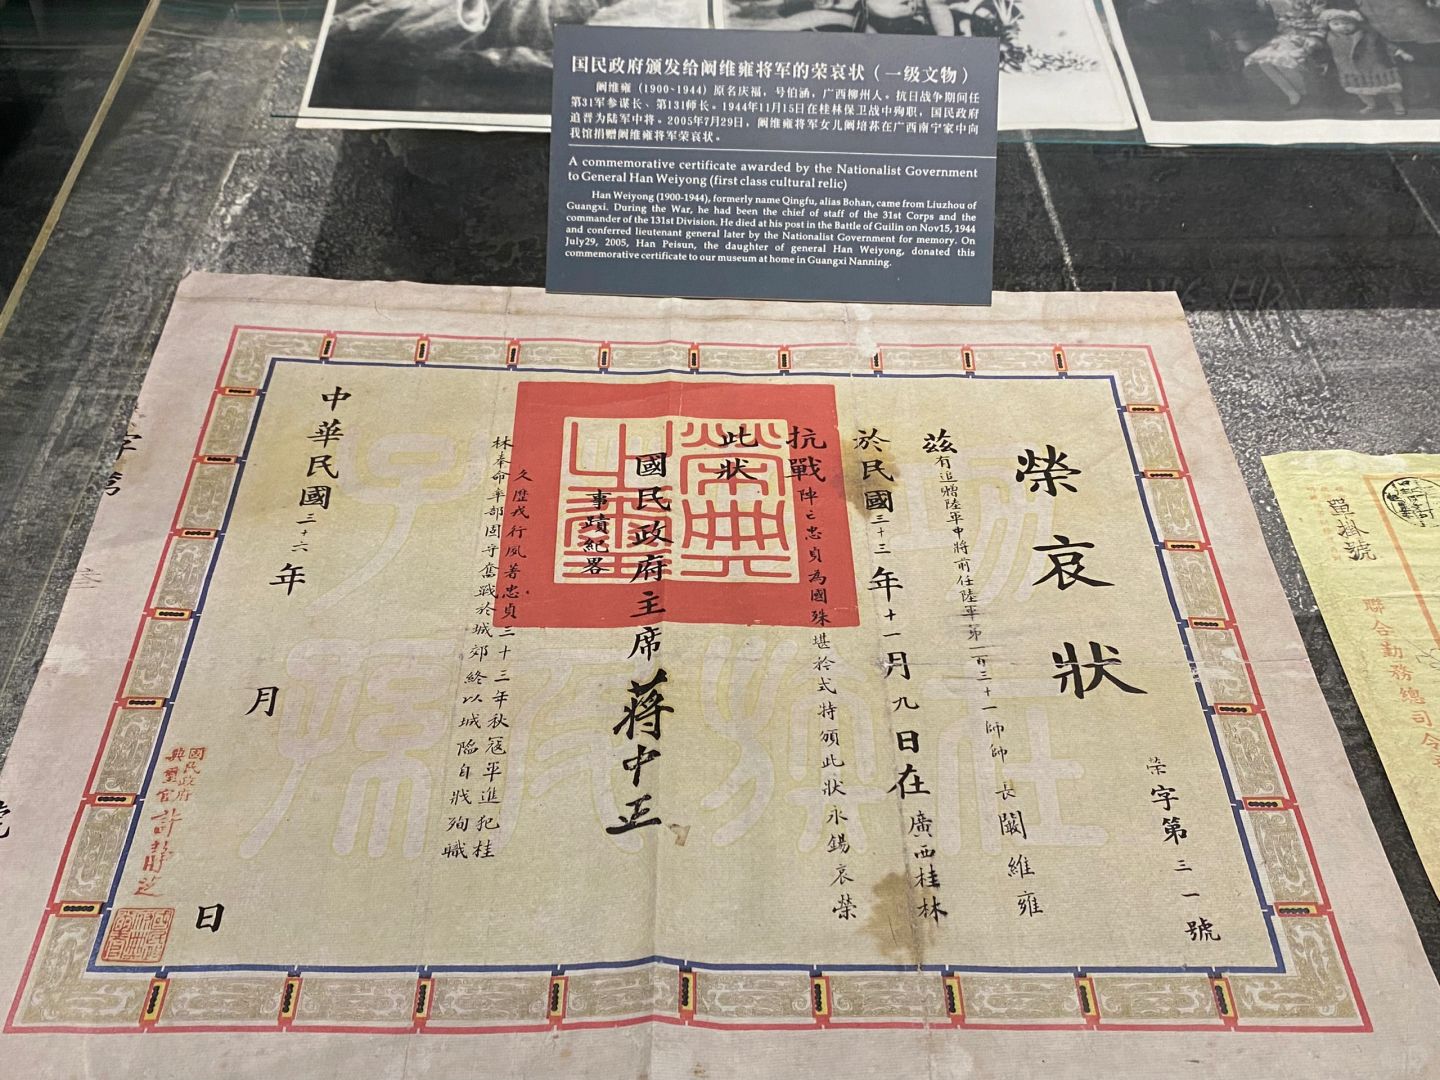 国民政府颁发给阚维雍将军的荣哀状（一级文物）
阚维雍（1900-1944）原名庆福，号伯涵，广西柳州人。抗日战争期间任
第31军参谋长、第131师长。1944年11月15日在桂林保卫战中殉职，国民政府
追晋为陆军中将。2005年7月29日，阚维雍将军女儿阚培荪在广西南宁家中向
我馆捐赠阚维雍将军荣哀状。
A commemorative certificate awarded by the Nationalist Government
to General Han Weiyong (first class cultural relic)
Han Weiyong (1900-1944), formerly name Qingfu, alias Bohan, came from Liuzhou of
Guangxi. During the War, he had been the chief of staff of the 31st Corps and the
commander of the 131st Division. He died at his post in the Battle of Guilin on Nov15, 1944
and conferred lieutenant general later by the Nationalist Government for memory. On
July29, 2005, Han Peisun, the daughter of general Han Weiyong, donated this
commemorative certificate to our museum at home in Guangxi Nanning.
榮字第三一號
榮哀狀
茲有追贈陸軍中將前任陸軍第一百三十一師師長闞維雍
於民國三十三年十一月九日在廣西桂林
抗戰陣亡忠貞為國殊堪矜式特頒此狀永錫哀榮
此狀
國民政府主席蔣中正
事蹟紀畧
久歷戎行夙著忠貞三十三年秋寇平進犯桂
林奉命率部固守奮戰於城郊終以城陷自戕殉職
中華民國三十六年 月 日
國民政府
典璽官許靜芝
榮典之璽
掛號
聯合勤務總司令